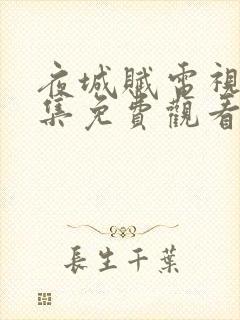 夜城賦電視
集免費觀看
長生千葉